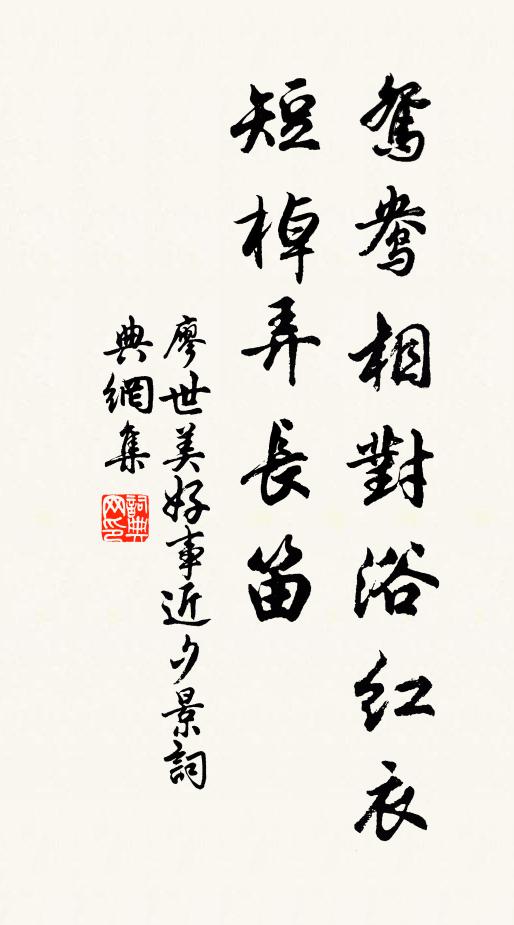 鴛鴦相對浴紅衣
短棹弄長笛
廖世美好事近夕景詞
典網集
詞典網印